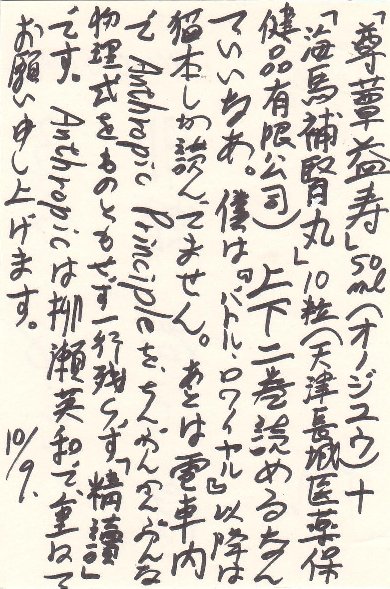 「尊蕈益寿」50ml(オノジユウ)+
「海馬補腎丸」10粒(天津長城医薬保
健品有限公司)上下二巻読めるなん
ていいなあ。僕は『バトル・ロワイヤル』以降は
猫本しか読んでません。あとは電車内
で Anthropic Principle を、ちんぷんかんぷんな
物理式をものともせず一行残らず「精讀」
です。Anthropicは柳瀬英和で重ねて
お願い申し上げます。
10/9.